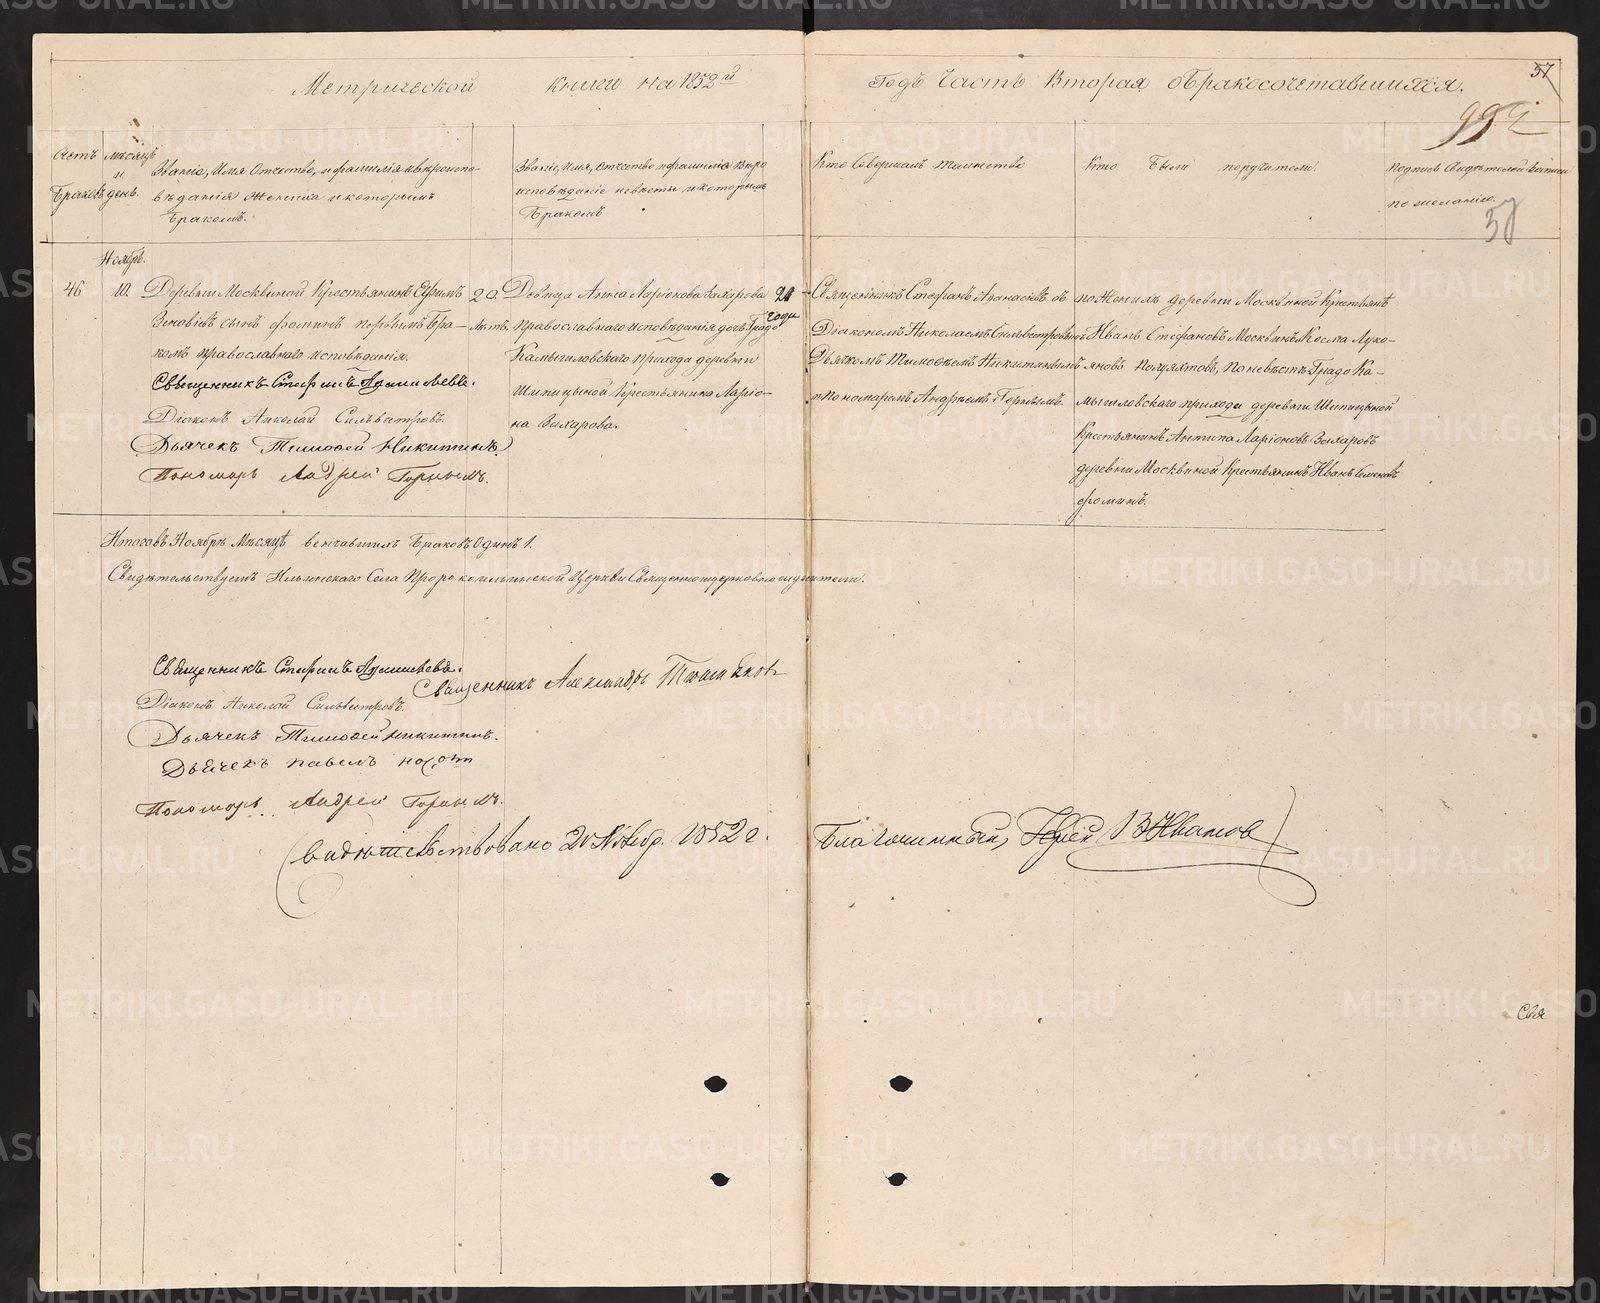 Метрической книги на 1852й
Годъ Часть Вторая о Бракосочетавшихся.
57
992
57
Счетъ Браковъ
Мѣсяцъ и день.
Званіе, Имя Отчество, и фамилія и вѣроиспо-
вѣданія Жениха и которымъ
Бракомъ.
Званіе, Имя, Отчество и фамилія Вѣро
исповѣданіе невѣсты и которымъ
Бракомъ
Кто Совершалъ таинство
Кто были поручители.
Подписи Свидѣтелей Записи
по желанію.
Ноябрь.
46
10.
Деревни Москвиной Крестьянинъ Ефимъ
Зиновіевъ сынъ Фоминъ первымъ Бра-
комъ православнаго исповѣданія.
Священникъ Стефанъ
Діаконъ Николай Сильвестровъ.
Дьячекъ Тимофей Никитинъ.
Пономарь Андрей Горныхъ.
20.
Лѣтъ.
Девица Анна Ларіонова Захарова
православнаго исповѣданія дочь Градо
Камышловскаго прихода деревни
Шипицыной Крестьянина Ларіо-
на Захарова.
21
года
Священникъ Стефанъ Афанасіевъ съ
Діакономъ Николаемъ Сильвестровымъ
Дьячкомъ Тимофеемъ Никитинымъ
и Пономаремъ Андреемъ Горныхъ.
по Женихѣ деревни Москвиной Крестьянѣ
Иванъ Стефановъ Москвинъ Косма Луко-
яновъ по невѣстѣ Градо Ка-
мышловскаго прихода деревни Шипицыной
Крестьянинъ Антипа Ларіоновъ Захаровъ
деревни Москвиной Крестьянинъ Иванъ Семеновъ
Фоминъ.
Итого въ Ноябрѣ Мѣсяцѣ венчавшихъ Браковъ Одинъ 1.
Свидѣтельствуемъ Ильинскаго Села Пророкоильинской Церкви Священноцерковнослужители.
Священникъ Стефанъ
Священникъ Александръ
Діаконъ Николай Сильвестровъ.
Дьячекъ Тимофей Никитинъ.
Дьячекъ Павелъ
Пономарь Андрей Горныхъ.
Свидѣтельствовано 20 Ноябр. 1852 г.
Благочинный, Іерей В Ивановъ
Свя
METRIKI.GASO-URAL.RU